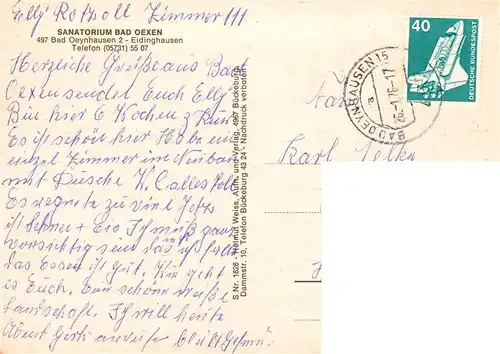 Elly Rotzoll Zimmer 111
SANATORIUM BAD OEXEN
497 Bad Oeynhausen 2 - Eidinghausen
Telefon (05731) 55 07
Herzliche Grüße aus Bad
Oexen sendet Euch Elly
Bin hier 6 Wochen z Kur
Es ist schön hier Habe ein
einzel Zimmer im
mit Dusche W.C alles
Es regnete zu viel Jetz
ist Schnee + Eis Ich muß ganz
vorsichtig sein das ich
das Essen ist gut. Wie geht
es Euch. Eine schöne weiße
Landschaft. Ich will heute
Abent anrufe bleibt Gesund
S Nr. 1826 - Helmut Weiss, Aufn. und Verlag, 4967 Bückeburg
Dammstr. 10, Telefon Bückeburg 43 24 - Nachdruck verboten
40
DEUTSCHE BUNDESPOST
BAD OEYNHAUSEN 15
Karl